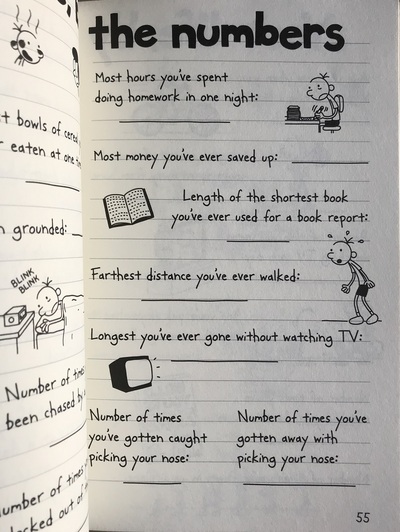 bowls of cereal
eaten at one
grounded:
BLINK
BLINK
Number of times
been chased by
number of times
locked out of
the numbers
Most hours you've spent
doing homework in one night:
Most money you've ever saved up:
Length of the shortest book
you've ever used for a book report:
Farthest distance you've ever walked:
Longest you've ever gone without watching TV:
Number of times
you've gotten caught
picking your nose:
Number of times you've
gotten away with
picking your nose:
55